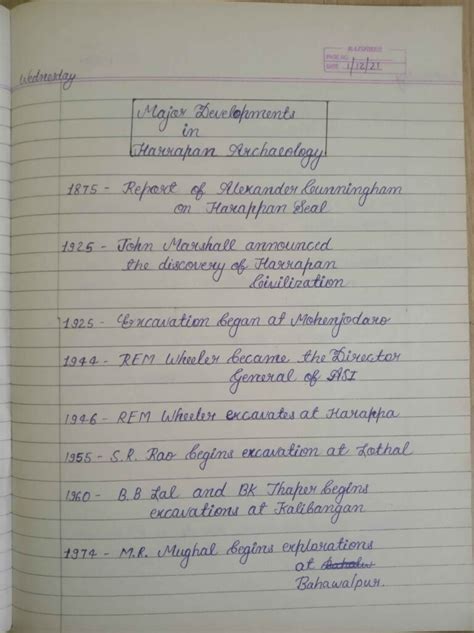 Wednesday
RAJSHREE
PAGE NO.
DATE 1/12/21
Major Developments
in
Harrapan Archaeology
1875 - Report of Alexander Cunningham
on Harappan Seal
1925 - John Marshall announced
the discovery of Harrapan
Civilization
1925 - Excavation began at Mohenjodaro
1944 - REM Wheeler became the Director
General of ASI
1946 - REM Wheeler excavates at Harappa
1955 - S.R. Rao begins excavation at Lothal
1960 - B.B Lal and BK Thaper begins
excavations at Kalibangan
1974 - M.R. Mughal begins explorations
at
Bahawalpur.